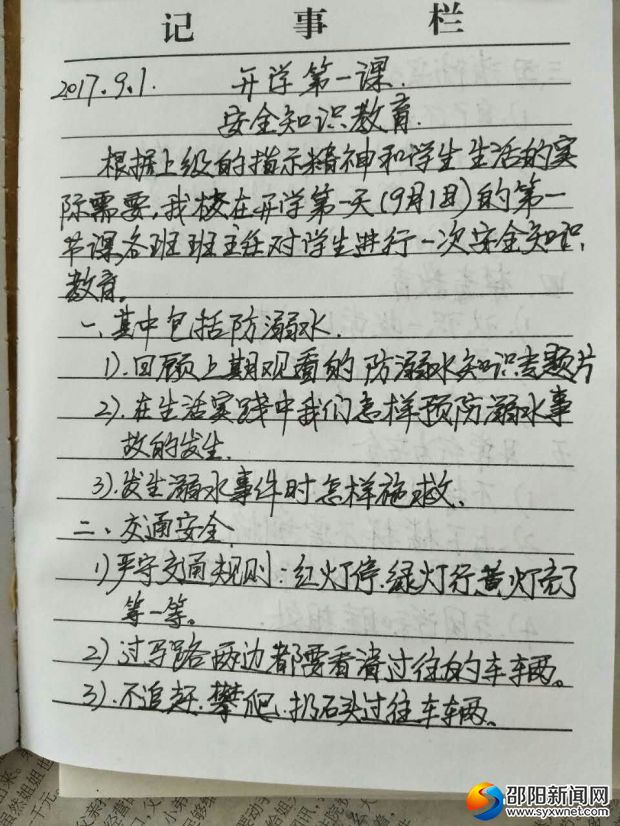 记事栏
2017.9.1. 开学第一课.
安全知识教育.
根据上级的指示精神和学生生活的实
际需要,我校在开学第一天(9月1日)的第一
节课,各班班主任对学生进行一次安全知识
教育。
一、其中包括防溺水.
1).回顾上期观看的防溺水知识专题片
2).在生活实践中我们怎样预防溺水事
故的发生.
3).发生溺水事件时怎样施救、
二、交通安全
1)严守交通规则:红灯停,绿灯行,黄灯亮了
等一等。
2)过马路两边都要看清过往的车辆。
3).不追赶.攀爬.扔石头过往车辆。
邵阳新闻网
www.syxwnet.com